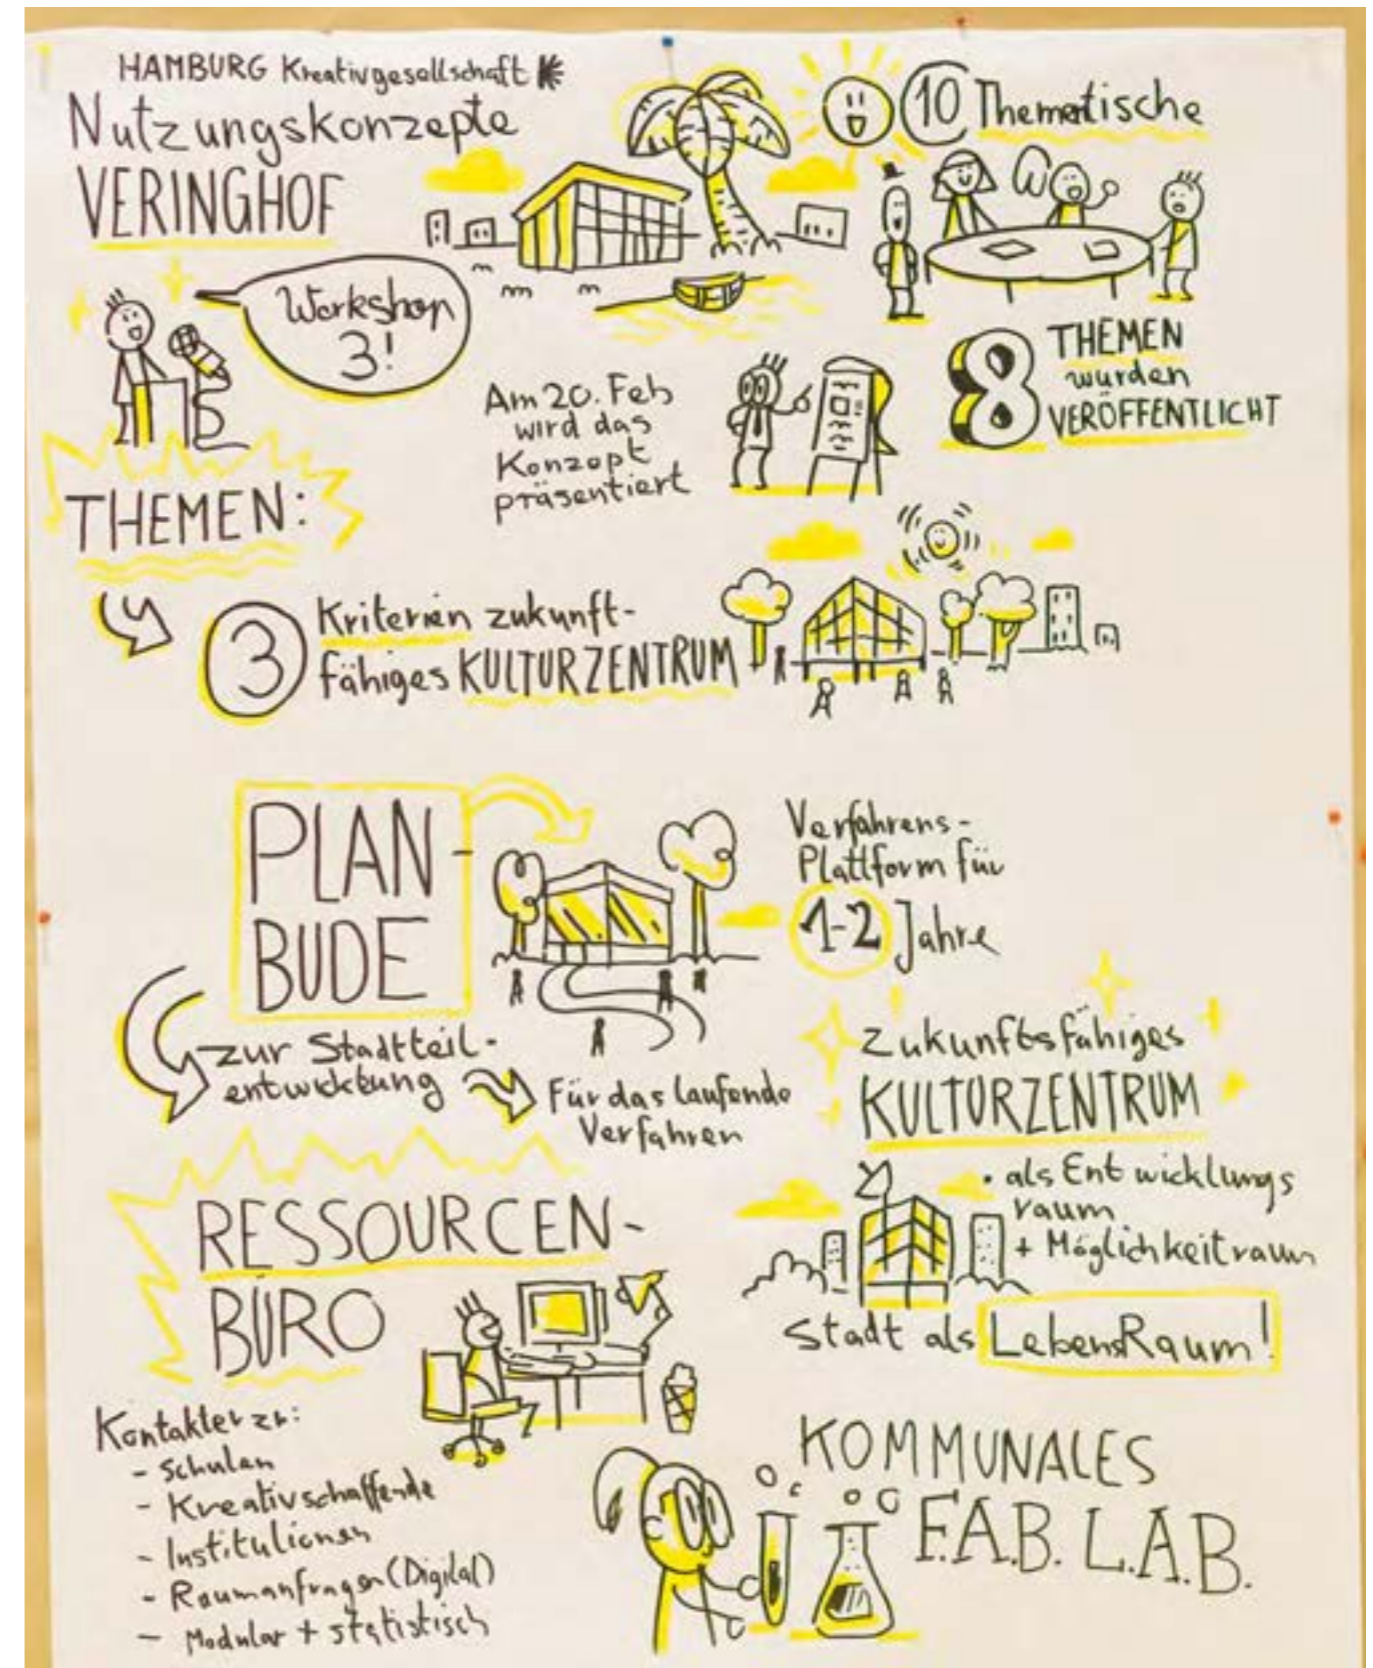 HAMBURG Kreativgesellschaft
Nutzungskonzepte
VERINGHOF
10 Thematische
Workshop
3!
8 THEMEN
wurden
VERÖFFENTLICHT
Am 20. Feb
wird das
Konzept
präsentiert
THEMEN:
3 Kriterien zukunft-
fähiges KULTURZENTRUM
PLAN-
BUDE
Verfahrens-
Plattform für
1-2 Jahre
zur Stadtteil-
entwicklung
Für das laufende
Verfahren
Zukunftsfähiges
KULTURZENTRUM
• als Entwicklungs
raum
+ Möglichkeitraum
Stadt als LebensRaum!
RESSOURCEN-
BÜRO
Kontakte zu:
- Schulen
- Kreativschaffende
- Institutionen
- Raumanfragen (Digital)
- Modular + statistisch
KOMMUNALES
F.A.B. L.A.B.